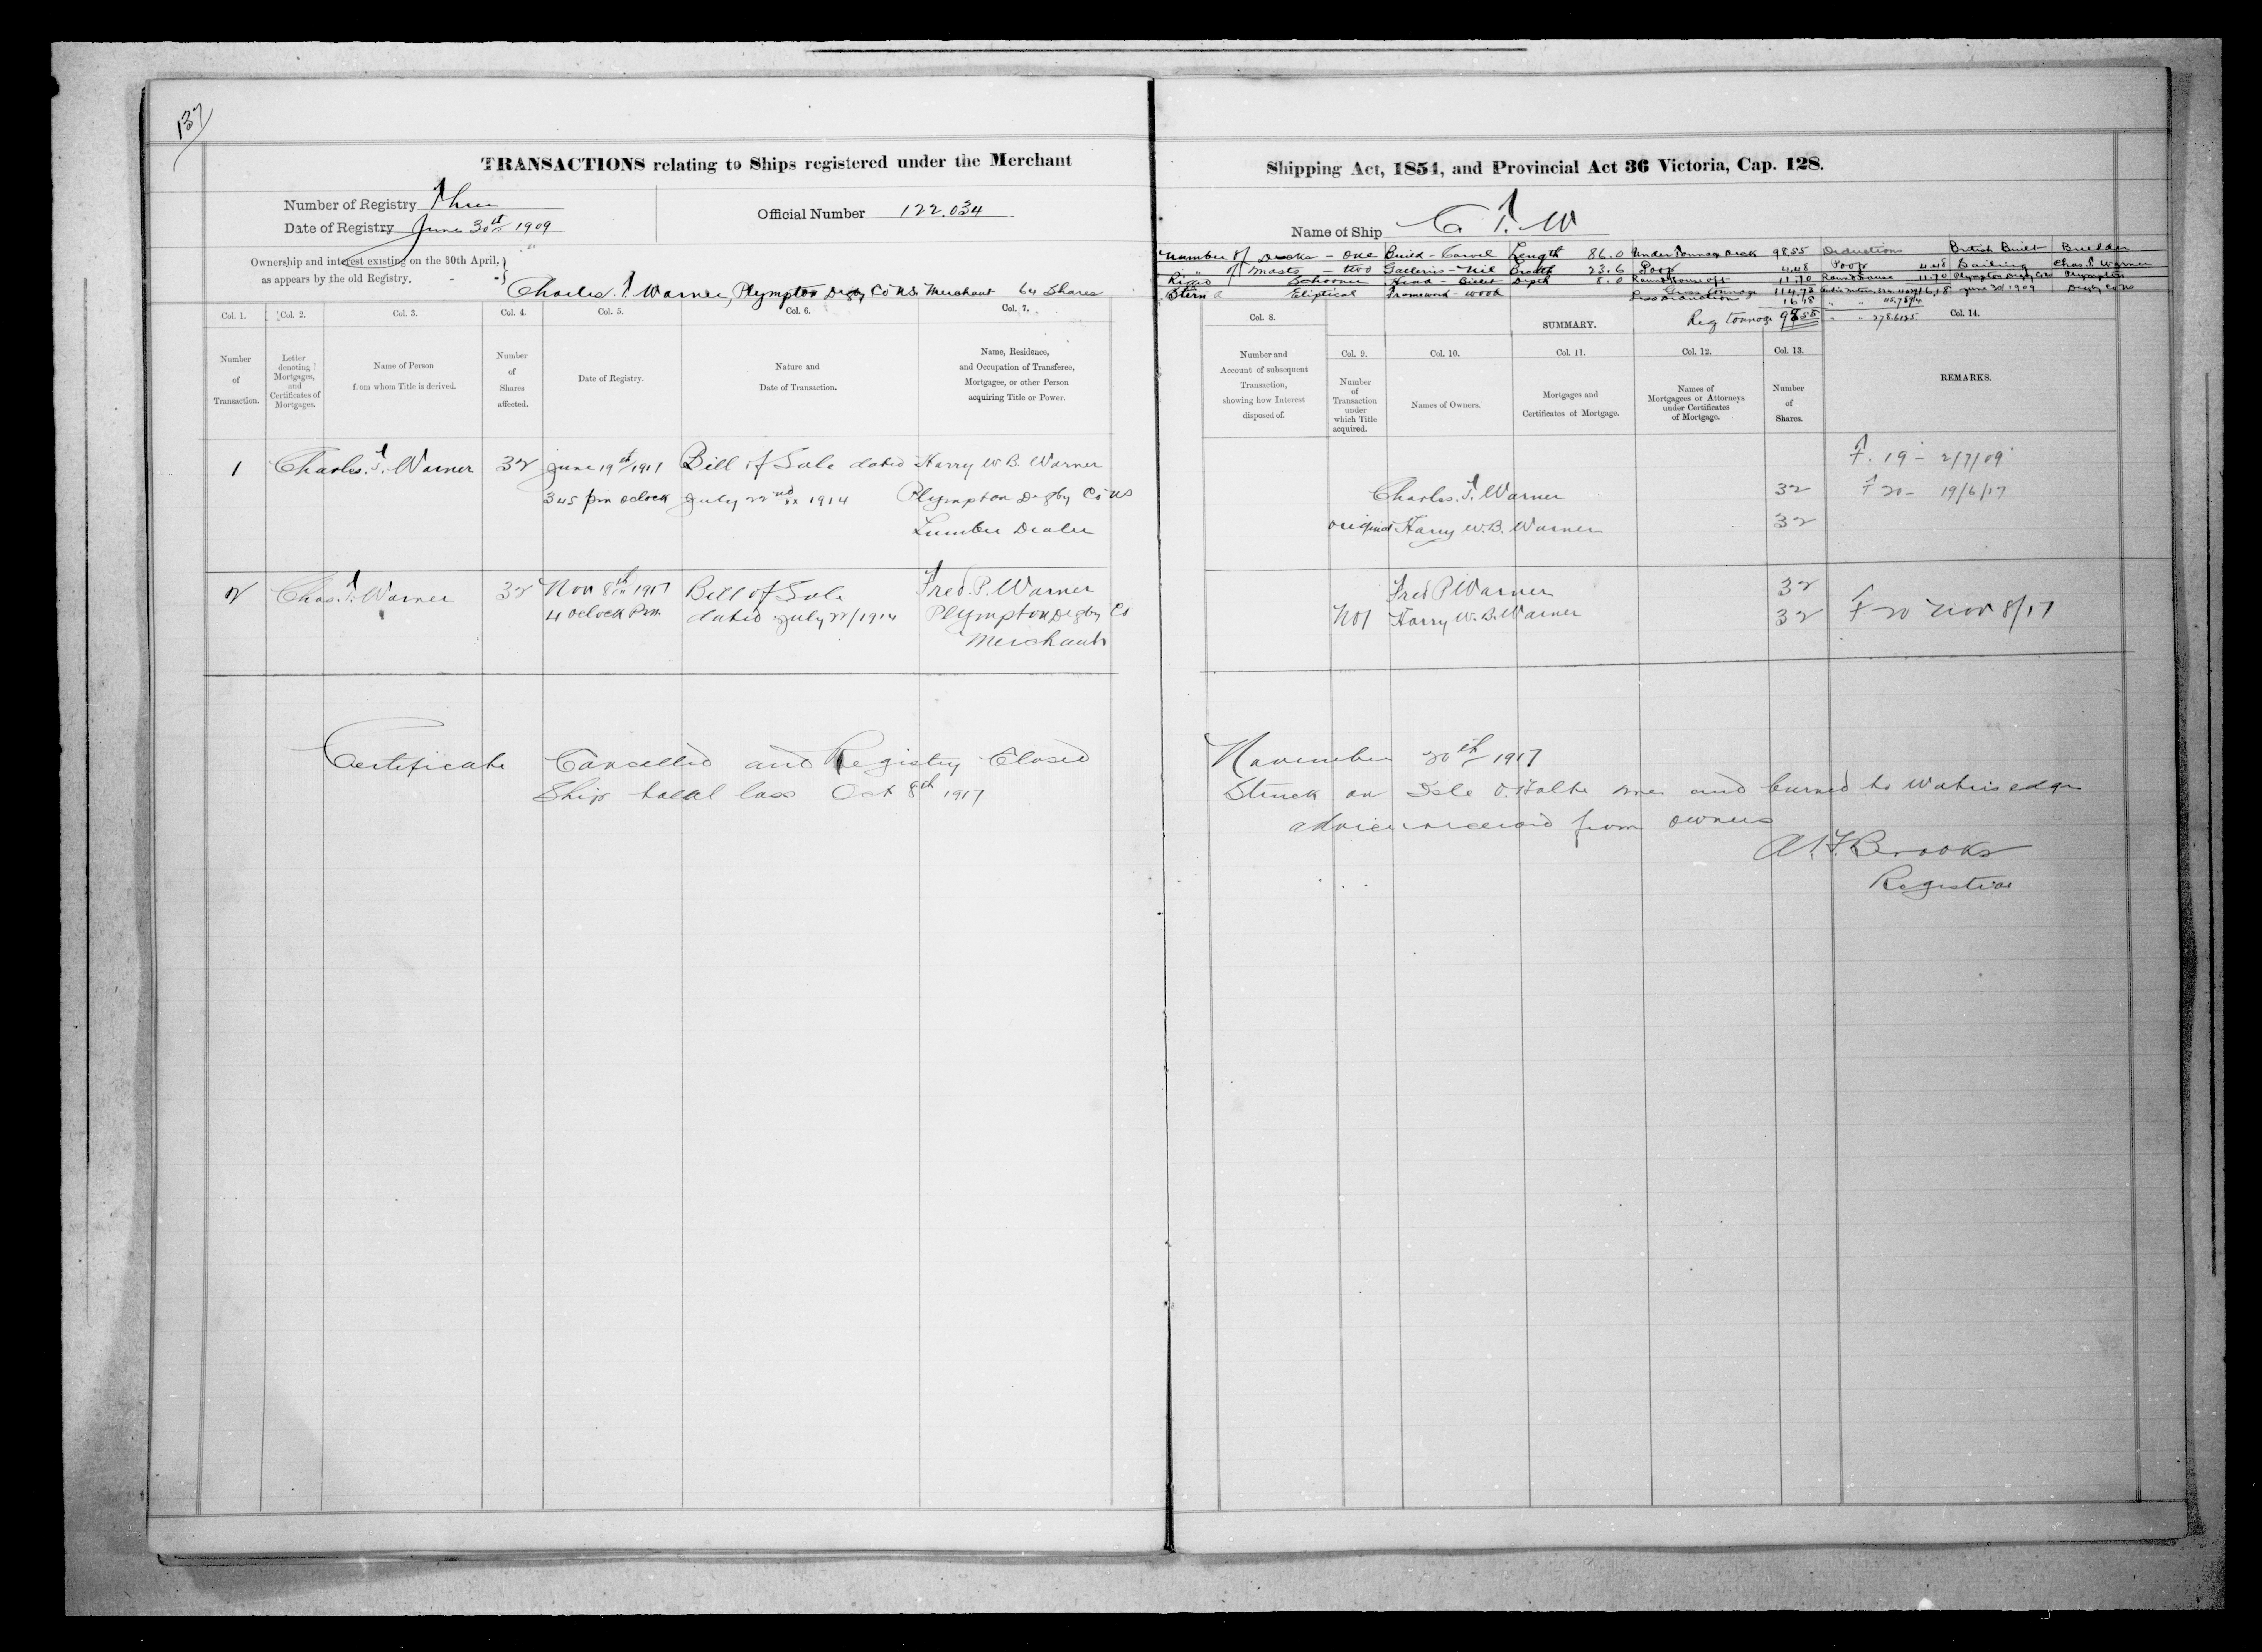 137
TRANSACTIONS relating to Ships registered under the Merchant
Number of Registry Three
Date of Registry June 30th 1909
Official Number 122.034
Ownership and interest existing on the 30th April,
as appears by the old Registry.
Charles T. Warner, Plympton Digby Co NS Merchant 64 Shares
Col. 1. Col. 2. Col. 3. Col. 4. Col. 5. Col. 6. Col. 7.
Number of Transaction.
Letter denoting Mortgages, and Certificates of Mortgages.
Name of Person from whom Title is derived.
Number of Shares affected.
Date of Registry.
Nature and Date of Transaction.
Name, Residence, and Occupation of Transferee, Mortgagee, or other Person acquiring Title or Power.
1 Charles. T. Warner 32 June 19th/1917 Bill of Sale dated Harry W. B. Warner
3 45 pm oclock July 22nd 1914 Plympton Digby Co NS
Lumber Dealer
2 Chas. T. Warner 32 Nov 8th 1917 Bill of Sale Fred. P. Warner
4 oclock Pm. dated July 22/1914 Plympton Digby Co
Merchant
Certificate Cancelled and Registry Closed
Ship total loss Oct 8th 1917
Shipping Act, 1854, and Provincial Act 36 Victoria, Cap. 128.
Name of Ship C. T. W
Number of Decks - one Build - Carvel Length 86.0 Under Tonnage Deck 98.55 Deductions British Built Builder
" of Masts - two Galleries - Nil Breadth 23.6 Poop 4.48 Poop 4.48 Sailing Chas. T. Warner
Rigged Schooner Head - Billet Depth 8.0 Round House 11.70 Round House 11.70 Plympton Digby Co NS Plympton
Stern Eliptical Framework - wood Gross Tonnage 114.73 16.18 June 30/1909 Digby Co NS
Less Deduction 16.18
Reg tonnage 98.55 " " 278.6125
Col. 8. SUMMARY. Col. 14.
Col. 9. Col. 10. Col. 11. Col. 12. Col. 13.
Number and Account of subsequent Transaction, showing how Interest disposed of.
Number of Transaction under which Title acquired.
Names of Owners.
Mortgages and Certificates of Mortgage.
Names of Mortgagees or Attorneys under Certificates of Mortgage.
Number of Shares.
REMARKS.
F. 19 - 2/7/09
Charles. T. Warner 32 F 20 - 19/6/17
original Harry W. B. Warner 32
Fred P Warner 32
No 1 Harry W. B. Warner 32 F 20 Nov 8/17
November 20th 1917
Struck on Isle and burned to Waters edge
advice received from owners
Brooks
Registrar